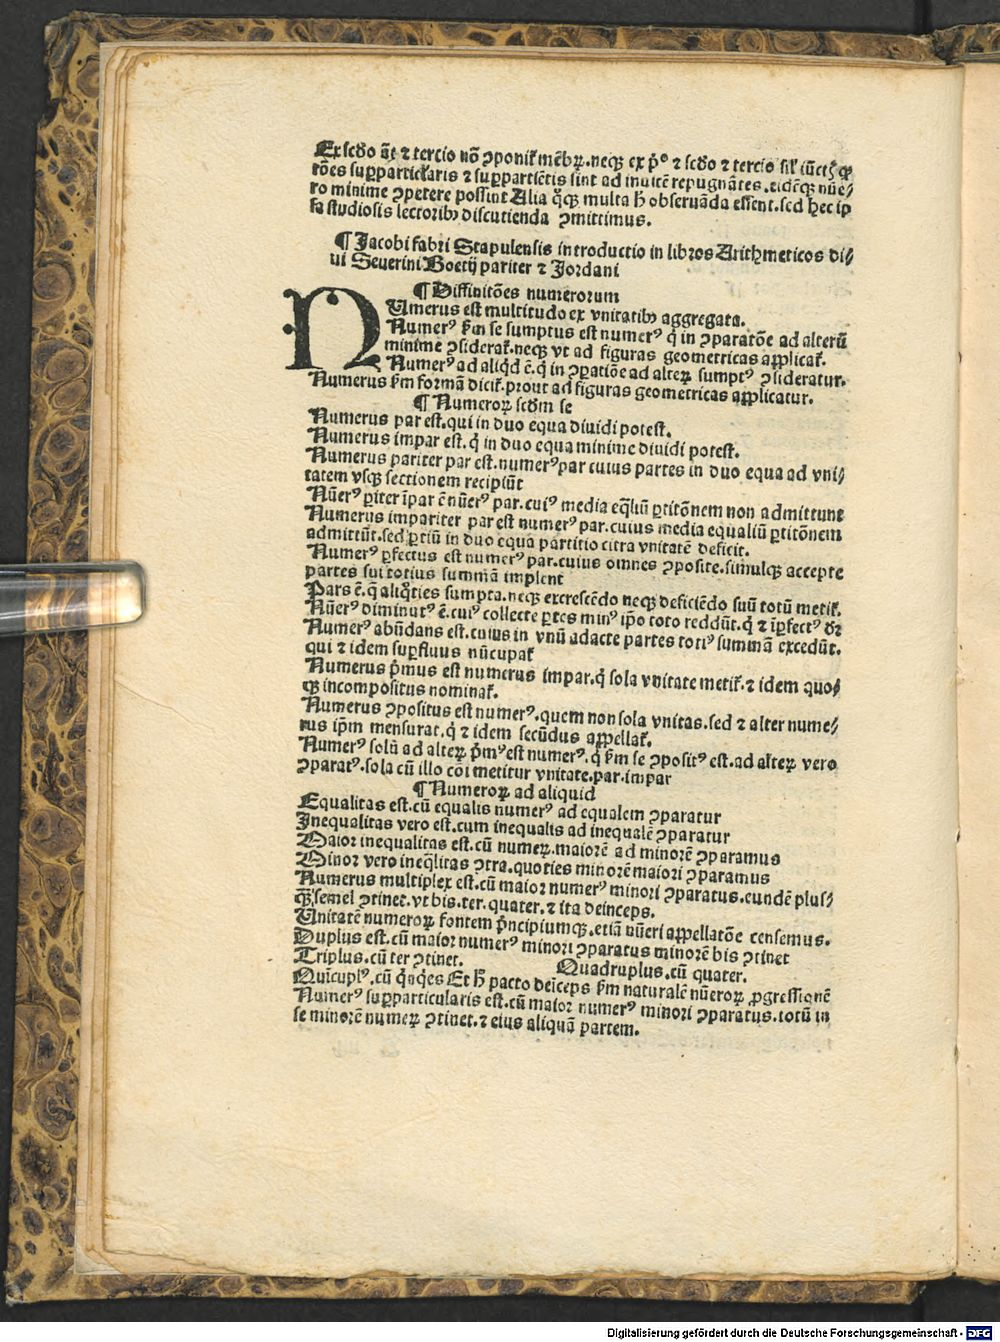 Ex scd̄o āt̄ ⁊ tercio nō ꝯponit᷑ mēbꝝ. neqꝫ ex p̄º ⁊ scd̄o ⁊ tercio sil̓
rōes suꝑparticl̓aris ⁊ suꝑpartiētis sint ad inuicē repugnātes. eidēqꝫ nūe/
ro minime ꝯpetere possint Alia q̊qꝫ multa h̄ obseruāda essent. sed hec ip
sa studiosis lectoribꝰ discutienda ꝯmittimus.
¶ Jacobi fabri Stapulensis introductio in libros Arithmeticos di/
ui Seuerini Boetij pariter ⁊ Jordani
¶ Diffinitōes numerorum
NUmerus est multitudo ex vnitatibꝰ aggregata.
Numerꝰ ẜm se sumptus est numerꝰ q̇ in ꝯparatōe ad alterū
minime ꝯsiderat᷑. neqꝫ vt ad figuras geometricas applicat᷑.
Numerꝰ ad aliqd̓ ē. q̇ in ꝯꝑatiōe ad alteꝝ sumptꝰ ꝯsideratur.
Numerus ẜm formā dicit᷑. prout ad figuras geometricas applicatur.
¶ Numeroꝝ scd̓m se
Numerus par est. qui in duo equa diuidi potest.
Numerus impar est. q̇ in duo equa minime diuidi potest.
Numerus pariter par est. numerꝰ par cuius partes in duo equa ad vni/
tatem vsqꝫ sectionem recipiūt
Nūerꝰ ꝑiter īpar ē nūerꝰ par. cuiꝰ media eq̄liū ꝑtitōnem non admittunt
Numerus impariter par est numerꝰ par. cuius media equaliū ꝑtitōnem
admittūt. sed ꝑtiū in duo equa partitio citra vnitatē deficit.
Numerꝰ ꝑfectus est numerꝰ par. cuius omnes ꝯposite. simulqꝫ accepte
partes sui totius summā implent
Pars ē. q̄ aliq̊ties sumpta. neqꝫ excrescēdo neqꝫ deficiēdo suū totū metit᷑.
Nūerꝰ diminutꝰ ē. cuiꝰ collecte ꝑtes minꝰ ip̄o toto reddūt. q̇ ⁊ īꝑfectꝰ dr̄
Numerꝰ abūdans est. cuius in vnū adacte partes totiꝰ summā excedūt.
qui ⁊ idem suꝑfluus nūcupat᷑
Numerus p̄mus est numerus impar. q̇ sola vnitate metit᷑. ⁊ idem quo/
qꝫ incompositus nominat᷑.
Numerus ꝯpositus est numerꝰ. quem non sola vnitas. sed ⁊ alter nume/
rus ip̄m mensurat. q̇ ⁊ idem secūdus appellat᷑.
Numerꝰ solū ad alteꝝ p̄mꝰ est numerꝰ. q̇ ẜm se ꝯpositꝰ est. ad alteꝝ vero
ꝯparatꝰ. sola cū illo cōi metitur vnitate. par. impar
¶ Numeroꝝ ad aliquid
Equalitas est. cū equalis numerꝰ ad equalem ꝯparatur
Inequalitas vero est. cum inequalis ad inequalē ꝯparatur
Maior inequalitas est. cū numeꝝ. maiorē ad minorē ꝯparamus
Minor vero ineq̄litas ꝯtra. quoties minorē maiori ꝯparamus
Numerus multiplex est. cū maior numerꝰ minori ꝯparatus. eundē plus/
qꝫ semel ꝯtinet. vt bis. ter. quater. ⁊ ita deinceps.
Unitatē numeroꝝ fontem p̄ncipiumqꝫ. etiā nūeri appellatōe censemus.
Duplus est. cū maior numerꝰ minori ꝯparatus minorē bis ꝯtinet
Triplus. cū ter ꝯtinet. Quadruplus. cū quater.
Quīcuplꝰ. cū q̇nq̇es Et h̄ pacto deīceps ẜm naturalē nūeroꝝ ꝓgressionē
Numerꝰ suꝑparticularis est. cū maior numerꝰ minori ꝯparatus. totū in
se minorē numeꝝ ꝯtinet. ⁊ eius aliquā partem.
Digitalisierung gefördert durch die Deutsche Forschungsgemeinschaft - DFG